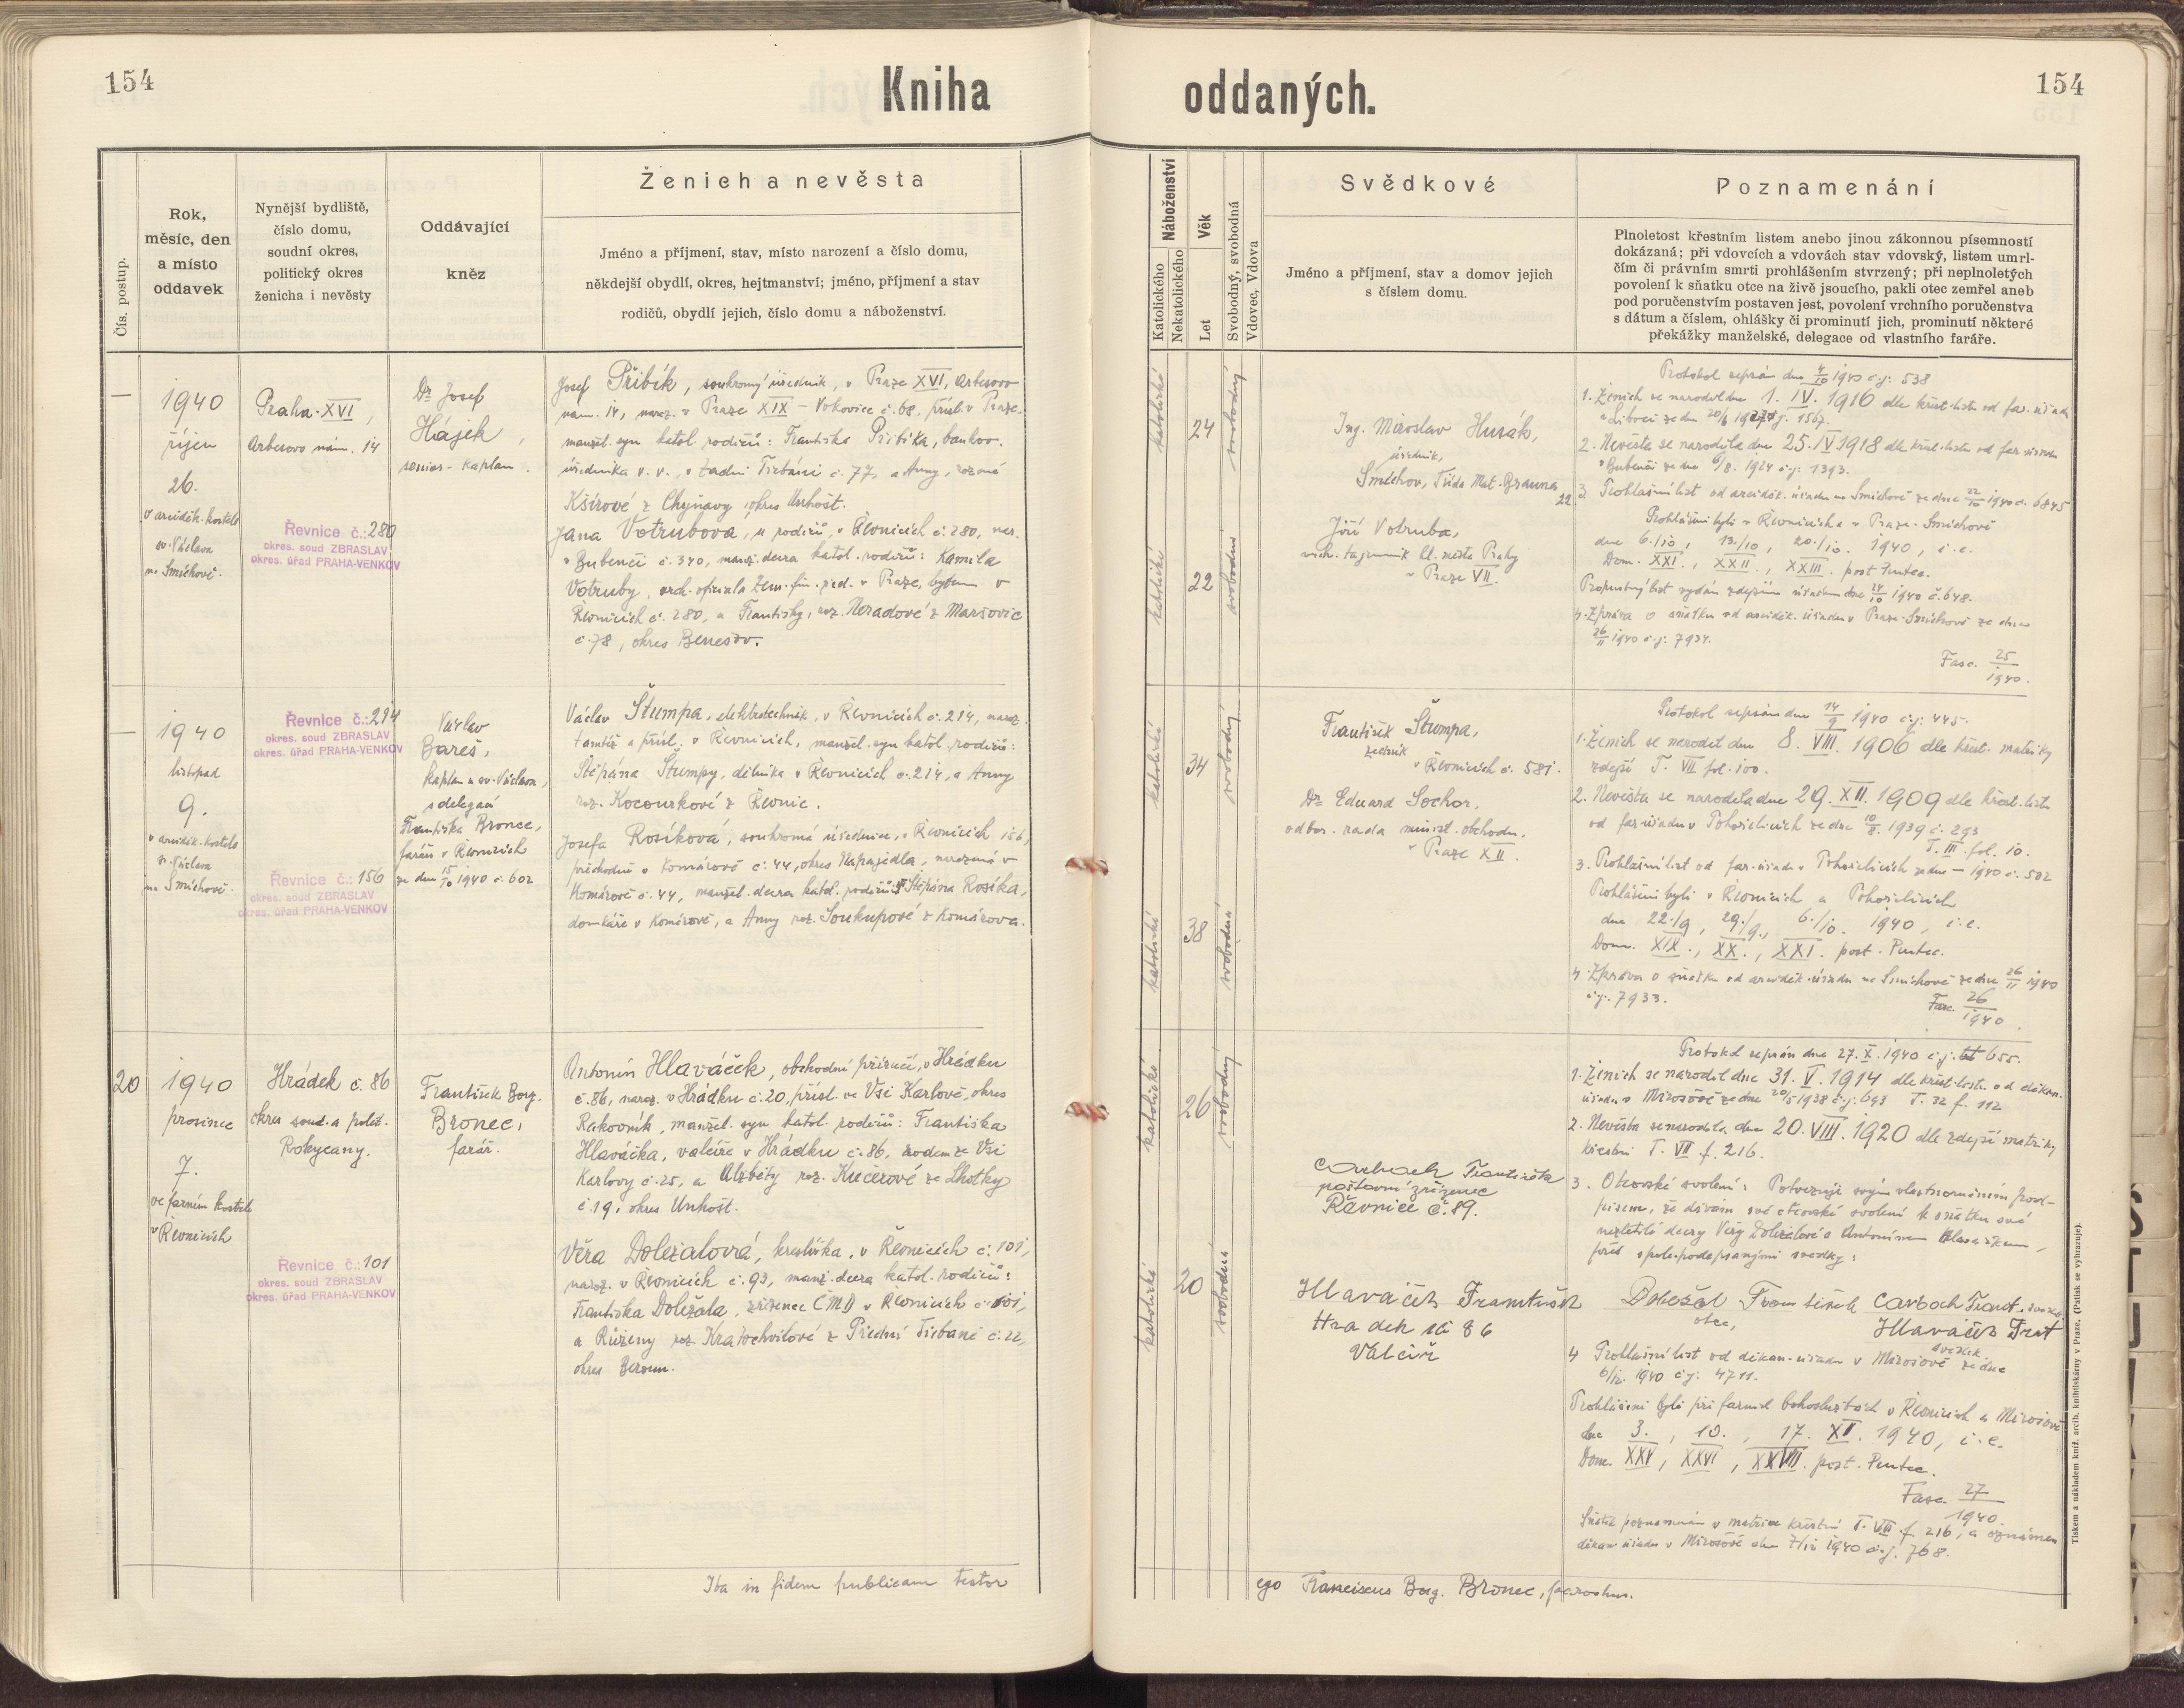 154
Kniha
oddaných.
154
Čís. postup.
Rok,
měsíc, den
a místo
oddavek
Nynější bydliště,
číslo domu,
soudní okres,
politický okres
ženicha i nevěsty
Oddávající
kněz
Ženich a nevěsta
Jméno a příjmení, stav, místo narození a číslo domu,
někdejší obydlí, okres, hejtmanství; jméno, příjmení a stav
rodičů, obydlí jejich, číslo domu a náboženství.
Náboženství
Katolického
Nekatolického
Věk
Let
Svobodný, svobodná
Vdovec, Vdova
Svědkové
Jméno a příjmení, stav a domov jejich
s číslem domu.
Poznamenání
Plnoletost křestním listem anebo jinou zákonnou písemností
dokázaná; při vdovcích a vdovách stav vdovský, listem umrl-
čím či právním smrti prohlášením stvrzený; při neplnoletých
povolení k sňatku otce na živě jsoucího, pakli otec zemřel aneb
pod poručenstvím postaven jest, povolení vrchního poručenstva
s dátum a číslem, ohlášky či prominutí jich, prominutí některé
překážky manželské, delegace od vlastního faráře.
—
1940
říjen
26.
v arciděk. kostele
sv. Václava
na Smíchově.
Praha-XVI,
Arbesovo nám. 14
Řevnice č.: 280
okres. soud ZBRASLAV
okres. úřad PRAHA-VENKOV
Dr. Josef
Hájek,
senior-kaplan.
Josef Přibík, soukromý úředník, v Praze XVI, Arbesovo
nám. 14, naroz. v Praze XIX - Vokovice č. 68, přísl. v Praze.
manžel. syn katol. rodičů: Františka Přibíka, bankov.
úředníka v. v., v Zadní Třebáni č. 77, a Anny, rozené
Kšírové z Chyňavy, okres Unhošť.
Jana Votrubová, u rodičů, v Řevnicích č. 280, nar.
v Bubenči č. 340, manž. dcera katol. rodičů: Kamila
Votruby, vrch. oficiala Zem. fin. řed. v Praze, bytem v
Řevnicích č. 280, a Františky, roz. Neradové z Maršovic
č. 78, okres Benešov.
katolické
24
svobodný
katolické
22
svobodná
Ing. Miroslav Husák,
úředník,
Smíchov, Třída Mat. Brauna
22
Jiří Votruba,
vrch. tajemník hl. města Prahy
v Praze VII.
Protokol sepsán dne 4/10 1940 č.j. 538
1. Ženich se narodil dne 1. IV. 1916 dle křest. listu od far. úřadu
2. Nevěsta se narodila dne 25. IV 1918 dle křest. listu od far. úřadu
v Bubenči ze dne 6/8. 1924 č.j. 1393.
3. Prohlášní list od arciděk. úřadu na Smíchově ze dne 22/10 1940 č. 6845
Prohlášeni byli v Řevnicích a v Praze-Smíchově
dne 6./10, 13./10, 20./10. 1940, i. e.
Dom. XXI., XXII., XXIII. post Pentec.
Propustný list vydán zdejším úřadem dne 24/10 1940 č. 648.
4. Zpráva o sňatku od arciděk. úřadu v Praze-Smíchově ze dne
26/11 1940 č.j. 7934.
Fasc. 25/1940.
—
1940
listopad
9.
v arciděk. kostele
sv. Václava
na Smíchově.
Řevnice č.: 214
okres. soud ZBRASLAV
okres. úřad PRAHA-VENKOV
Řevnice č.: 156
okres. soud ZBRASLAV
okres. úřad PRAHA-VENKOV
Václav
Bareš,
kaplan u sv. Václava,
s delegací
Františka Bronce,
faráře v Řevnicích
ze dne 15/10 1940 č. 602
Václav Štumpa, elektrotechnik, v Řevnicích č. 214, naroz.
tamtéž a přísl. v Řevnicích, manžel. syn katol. rodičů:
Štěpána Štumpy, dělníka v Řevnicích č. 214, a Anny
roz. Kocourkové z Řevnic.
Josefa Rosíková, soukromá úřednice, v Řevnicích 156,
předchodně v Komárově č. 44, okres Napajedla, narozená v
Komárově č. 44, manžel. dcera katol. rodičů: Štěpána Rosíka,
domkáře v Komárově, a Anny roz. Soukupové z Komárova.
katolické
34
svobodný
katolické
38
svobodná
František Štumpa,
zedník
v Řevnicích č. 581.
Dr. Eduard Sochor,
odbor. rada minist. obchodu,
v Praze XII.
Protokol sepsán dne 14/9 1940 č.j. 445.
1. Ženich se narodil dne 8. VIII. 1906 dle křest. matriky
zdejší T. VII fol. 100.
2. Nevěsta se narodila dne 29. XII. 1909 dle křest. listu
od far. úřadu v Pohořelicích ze dne 10/8. 1939 č. 293
T. III. fol. 10.
3. Prohlášní list od far. úřadu v Pohořelicích ze dne — 1940 č. 502
Prohlášeni byli v Řevnicích a Pohořelicích
dne 22./9, 29./9., 6./10. 1940, i. e.
Dom. XIX., XX., XXI. post. Pentec.
4. Zpráva o sňatku od arciděk. úřadu na Smíchově ze dne 26/11 1940
č.j. 7933.
Fasc. 26/1940.
20
1940
prosince
7.
ve farním kostele
v Řevnicích
Hrádek č. 86
okres soud. a polit.
Rokycany.
Řevnice č.: 101
okres. soud ZBRASLAV
okres. úřad PRAHA-VENKOV
František Borg.
Bronec,
farář.
Antonín Hlaváček, obchodní příručí, v Hrádku
č. 86, naroz. v Hrádku č. 20, přísl. ve Vsi Karlově, okres
Rakovník, manžel. syn katol. rodičů: Františka
Hlaváčka, valcíře v Hrádku č. 86, rodem ze Vsi
Karlovy č. 25, a Alžběty roz. Kučerové ze Lhotky
č. 19, okres Unhošť.
Věra Doležalová, kreslířka, v Řevnicích č. 101,
naroz. v Řevnicích č. 93, manž. dcera katol. rodičů:
Františka Doležala, zřízence ČMD v Řevnicích č. 101,
a Růženy roz. Kratochvílové z Přední Třebaně č. 22,
okres Beroun.
katolické
26
svobodný
katolické
20
svobodná
Carboch Františka
poštovní zřízenec
Řevnice č. 89.
Hlaváček František
Hrádek č. 86
Valcíř
Protokol sepsán dne 27. X. 1940 č.j. 655.
1. Ženich se narodil dne 31. V. 1914 dle křest. listu od děkan.
úřadu v Mirošově ze dne 20/5 1938 č.j. 693 T. 32 f. 112
2. Nevěsta se narodila dne 20. VIII. 1920 dle zdejší matriky
křestní T. VII f. 216.
3. Otcovské svolení: Potvrzuji svým vlastnoručním pod-
pisem, že dávám své otcovské svolení k sňatku své
nezletilé dcery Věry Doležalové s Antonínem Hlaváčkem,
před spolupodepsanými svědky:
Doležal František Carboch Frant. svědek
otec, Hlaváček Frat
svědek.
4 Prohlášní list od děkan. úřadu v Mirošově ze dne
6/12. 1940 č.j. 4711.
Prohlášeni byli při farních bohoslužbách v Řevnicích a Mirošově
dne 3., 10., 17. XI. 1940, i. e.
Dom. XXV, XXVI, XXVII. post. Pentec.
Fasc. 27/1940.
Sňatek poznamenán v matrice křestní T. VII. f. 216, a oznámen
děkan. úřadu v Mirošově dne 7/12 1940 č.j. 768.
Ita in fidem publicam testor
ego Franciscus Borg. Bronec, parochus.
Tiskem a nákladem kníž. arcib. knihtiskárny v Praze. (Patisk se vyhrazuje).